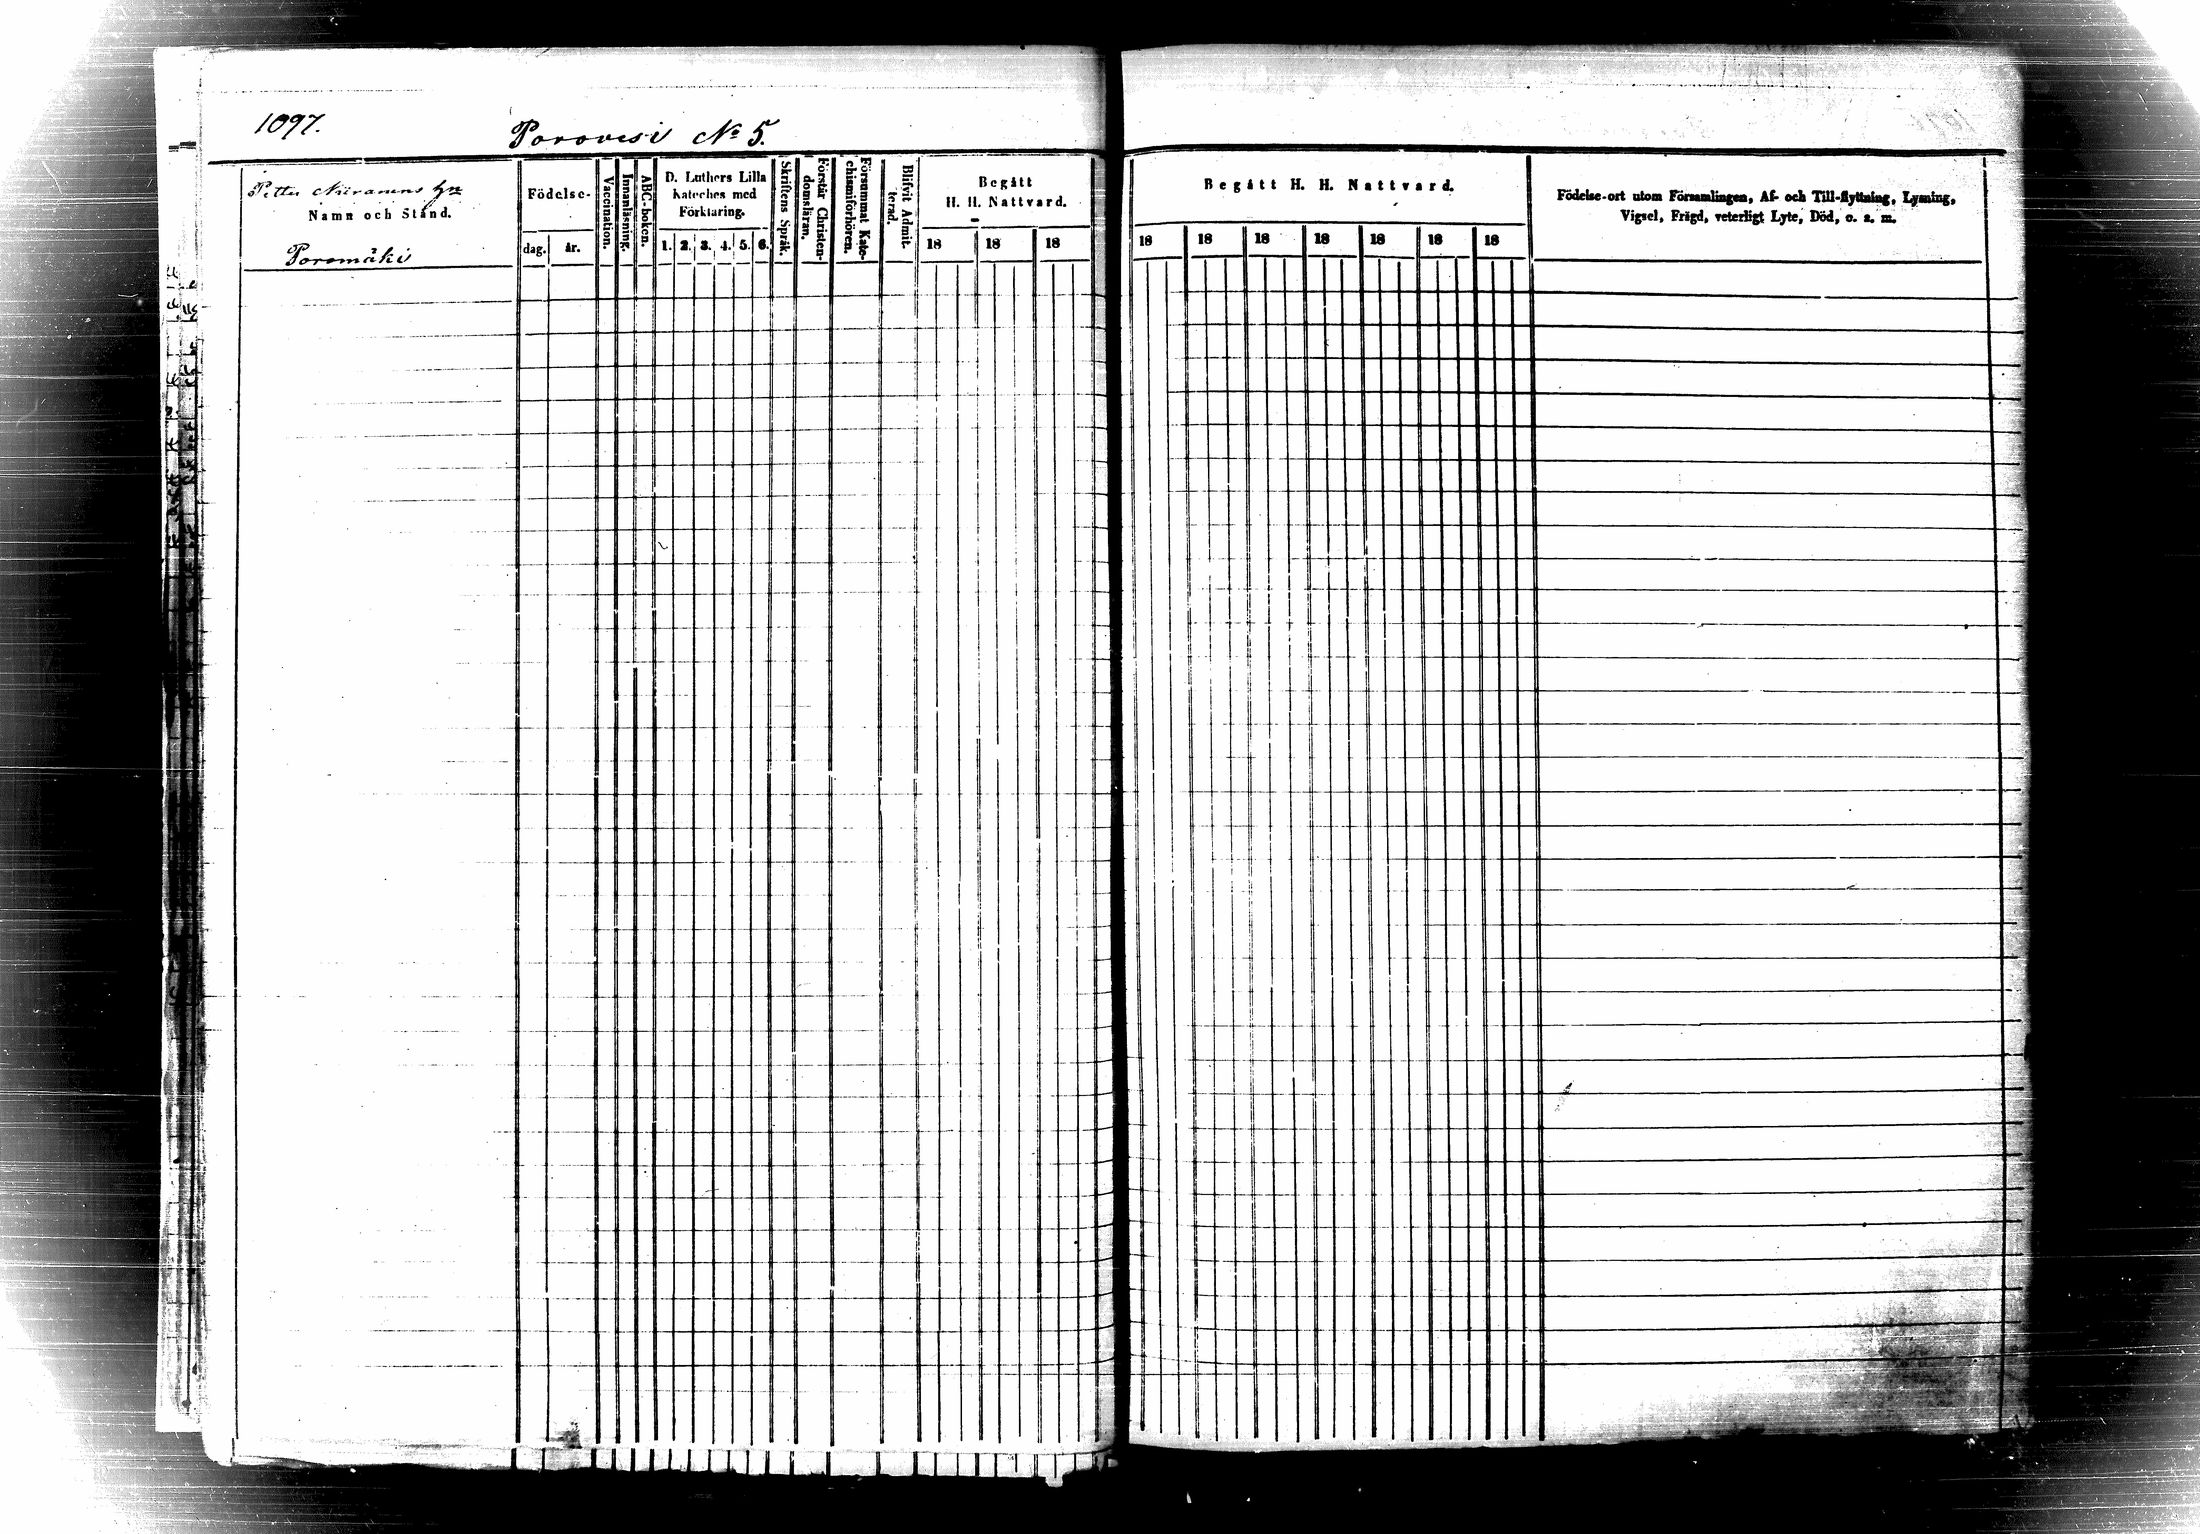 1097.
Porovesi No 5.
Petter Niiranens hn
Namn och Stånd.
Poromäki
Födelse-
dag. år.
Vaccination.
Innanläsning.
ABC-boken.
D. Luthers Lilla
Kateches med
Förklaring.
1. 2. 3. 4. 5. 6.
Skriftens Språk.
Förstår Christen-
domsläran.
Försummat Kate-
chismiförhören.
Blifvit Admit-
terad.
Begått
H. H. Nattvard.
18 18 18
Begått H. H. Nattvard.
18 18 18 18 18 18 18
Födelse-ort utom Församlingen, Af- och Till-flyttning, Lysning,
Vigsel, Frägd, veterligt Lyte, Död, o. s. m.